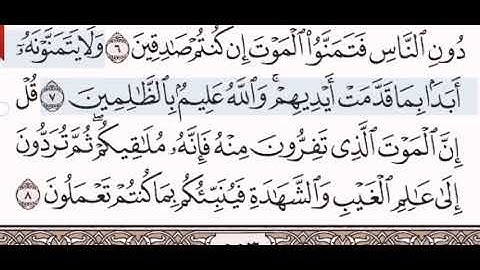 دُونِ ٱلنَّاسِ فَتَمَنَّوُا۟ ٱلْمَوْتَ إِن كُنتُمْ صَـٰدِقِينَ ٦ وَلَا يَتَمَنَّوْنَهُۥٓ
أَبَدًۢا بِمَا قَدَّمَتْ أَيْدِيهِمْ ۚ وَٱللَّهُ عَلِيمٌۢ بِٱلظَّـٰلِمِينَ ٧ قُلْ
إِنَّ ٱلْمَوْتَ ٱلَّذِى تَفِرُّونَ مِنْهُ فَإِنَّهُۥ مُلَـٰقِيكُمْ ۖ ثُمَّ تُرَدُّونَ
إِلَىٰ عَـٰلِمِ ٱلْغَيْبِ وَٱلشَّهَـٰدَةِ فَيُنَبِّئُكُم بِمَا كُنتُمْ تَعْمَلُونَ ٨